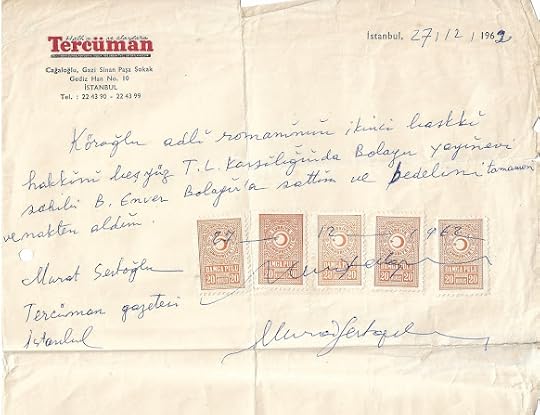 Halka ve olaylara
Tercüman
Cağaloğlu, Gazi Sinan Paşa Sokak
Gediz Han No. 10
İSTANBUL
Tel. : 22 43 90 - 22 43 99
İstanbul, 27/12/1962
Köroğlu adlı romanımın ikinci baskı
hakkını beşyüz T.L. karşılığında Bolayır yayınevi
sahibi B. Enver Bolayır'a sattım ve bedelini tamamen
ve nakten aldım.
27 12 1962
DAMGA PULU
20 20
DAMGA PULU
20 20
DAMGA PULU
20 20
DAMGA PULU
20 20
DAMGA PULU
20 20
Murat Sertoğlu
Tercüman gazetesi
İstanbul